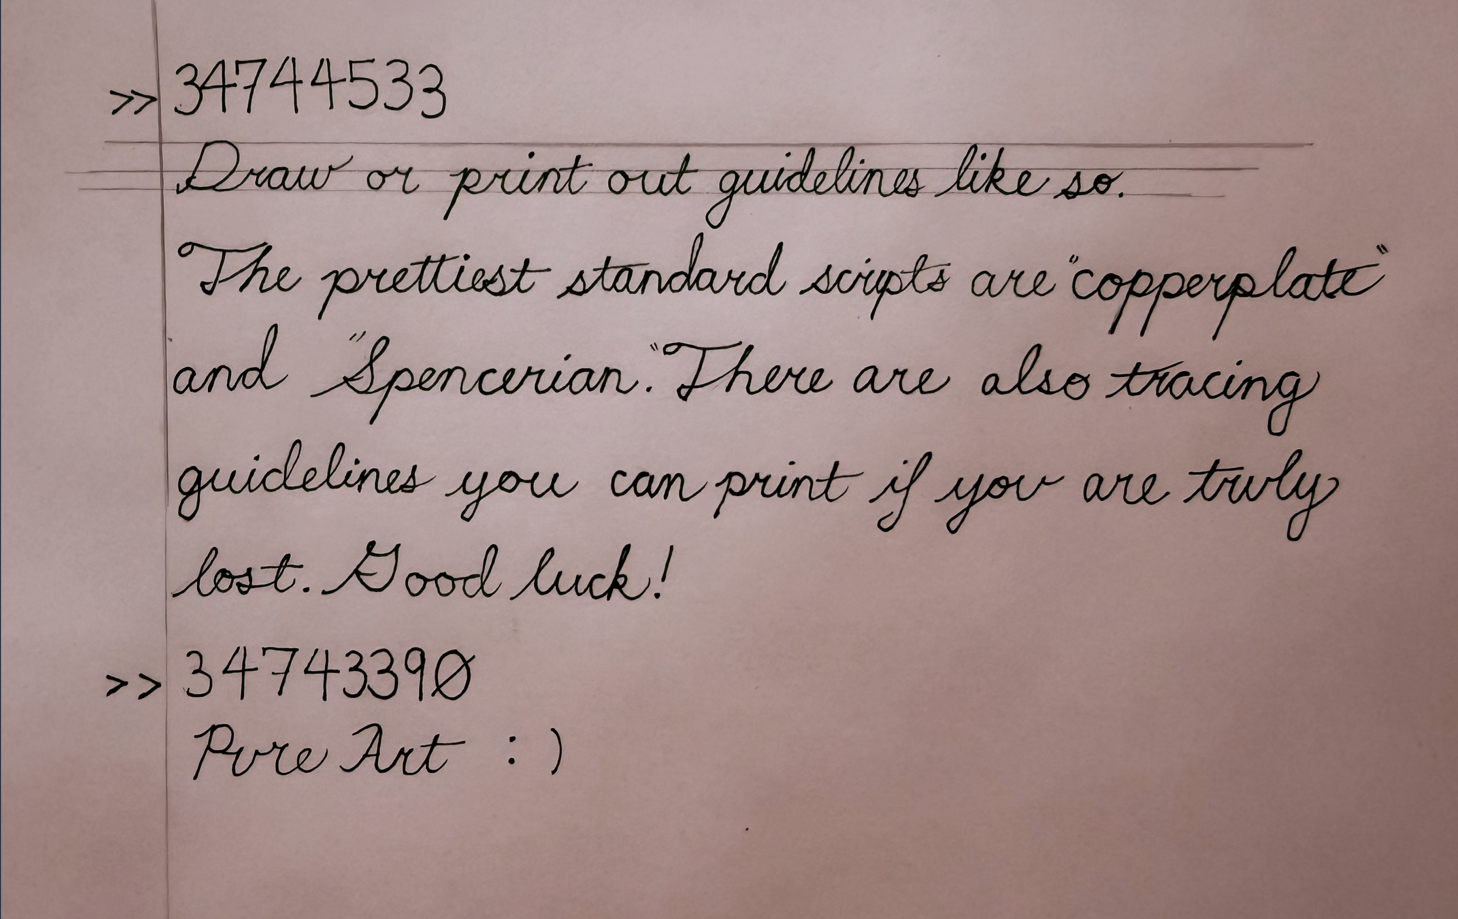 >> 34744533
Draw or print out guidelines like so.
The prettiest standard scripts are "copperplate"
and "Spencerian." There are also tracing
guidelines you can print if you are truly
lost. Good luck!
>> 34743390
Pure Art :)